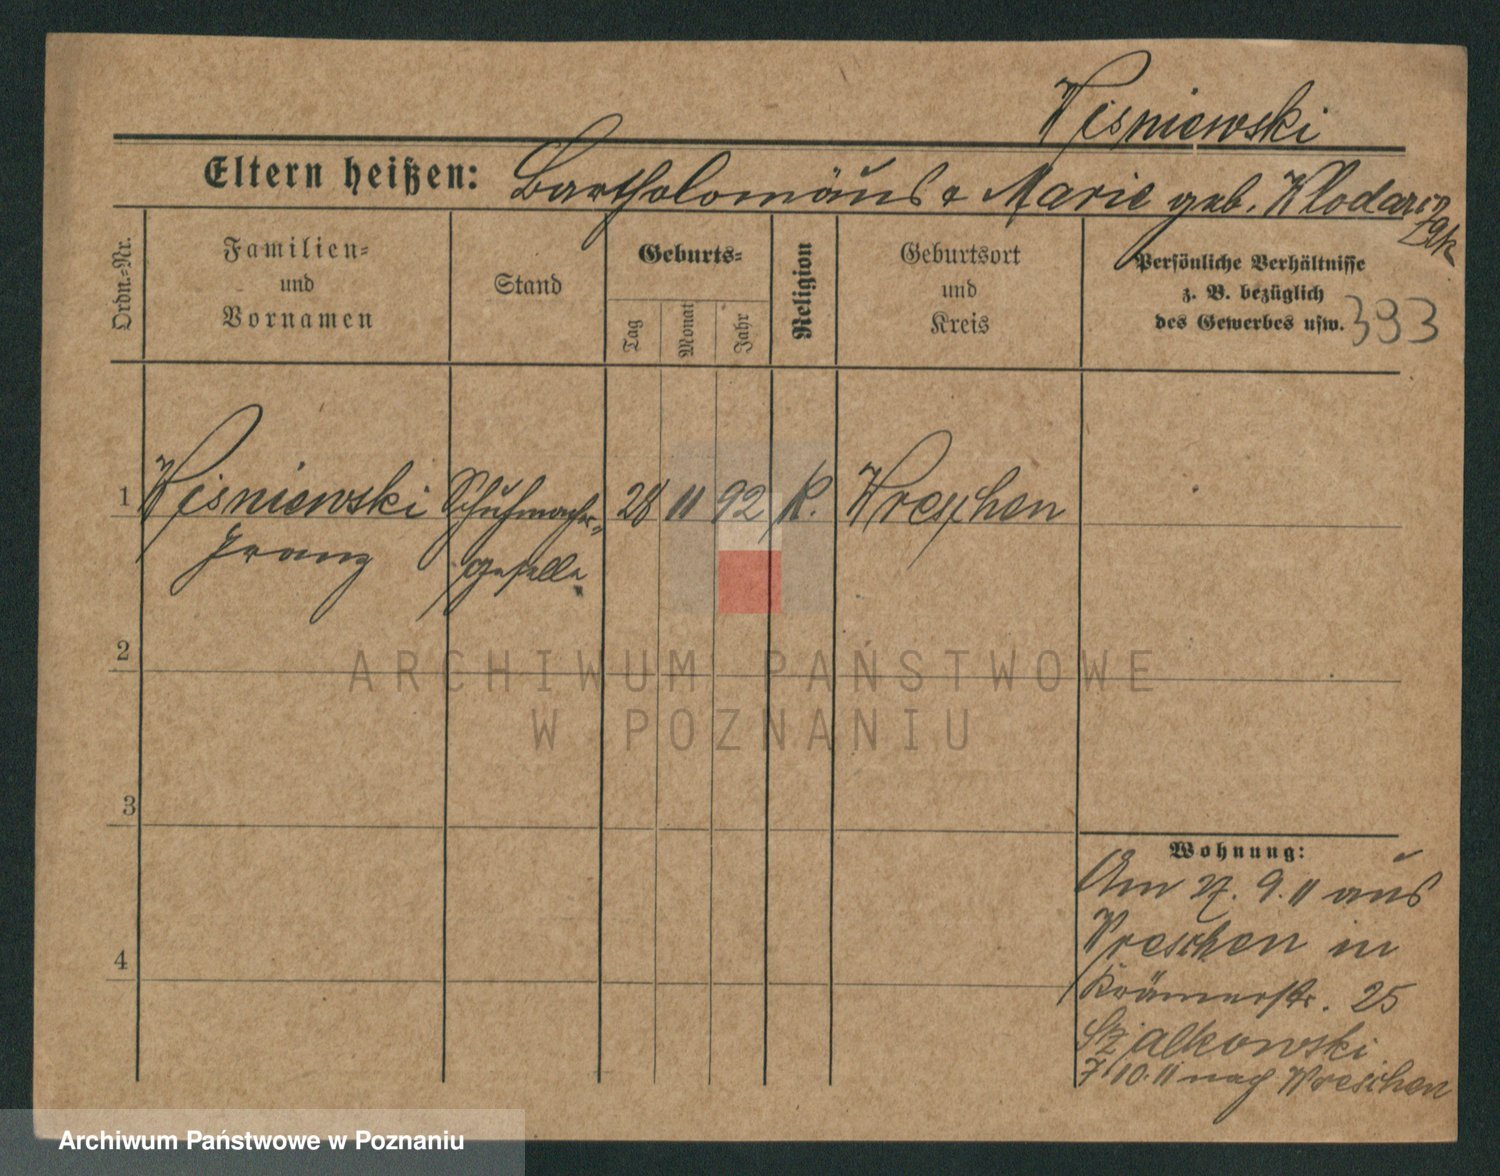 Wisniewski
Eltern heißen: Bartholomäus & Marie geb. Wlodarc
zak
Ordn.-Nr.
Familien-
und
Vornamen
Stand
Geburts-
Tag
Monat
Jahr
Religion
Geburtsort
und
Kreis
Persönliche Verhältnisse
z. B. bezüglich
des Gewerbes usw.
393
1 Wisniewski Schuhmacher- 28 11 92 K. Wreschen
Franz geselle
2
3
4
Wohnung:
Am 27. 9. 11 aus
Wreschen in
Krämerstr. 25
7/10. 11 nach Wreschen
ARCHIWUM PAŃSTWOWE
W POZNANIU
Archiwum Państwowe w Poznaniu